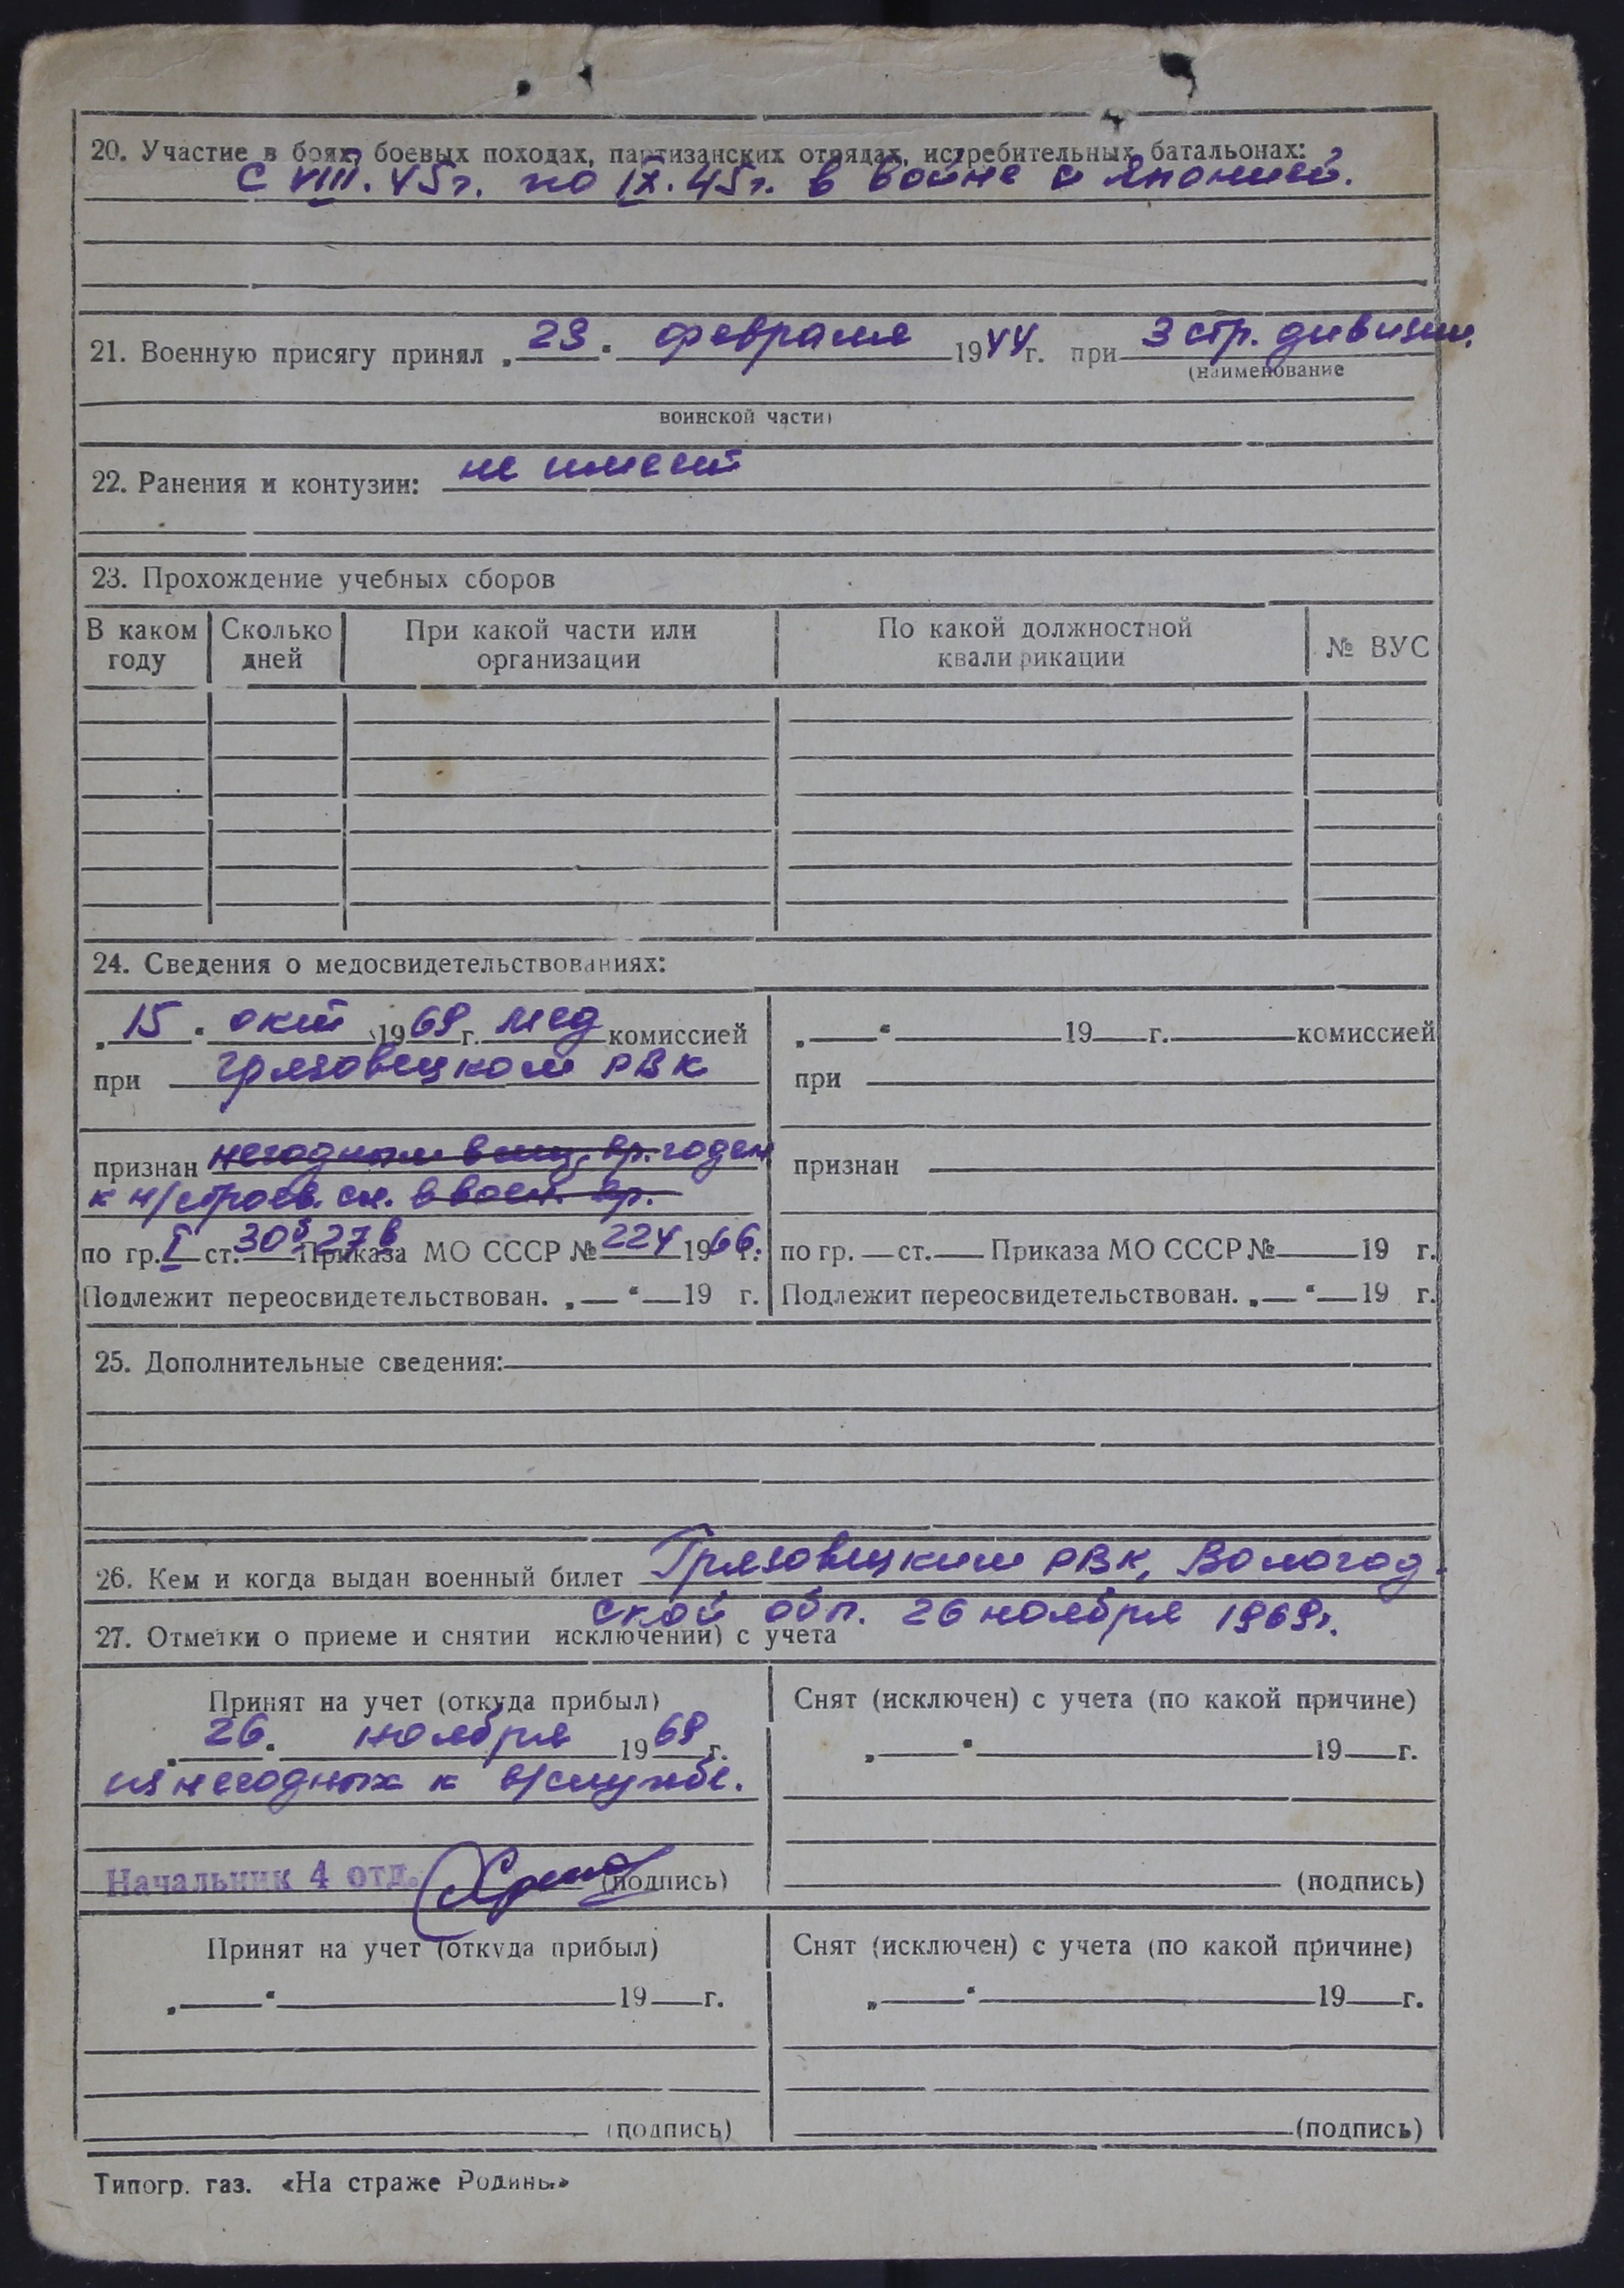 20. Участие в боях, боевых походах, партизанских отрядах, истребительных батальонах:
С VIII. 45г. по IX. 45г. в войне с Японией.
21. Военную присягу принял „23" февраля 1944г. при 3 стр. дивизии.
(наименование
воинской части)
22. Ранения и контузии: не имеет
23. Прохождение учебных сборов
В каком году Сколько дней При какой части или организации По какой должностной квалификации № ВУС
24. Сведения о медосвидетельствованиях:
„15" окт 1969 г. мед комиссией
при Грязовецком РВК
признан негодным в мир. вр. годен
к н/строев. сл. в воен. вр.
по гр. I ст. 30б 27в Приказа МО СССР № 224 1966 г.
Подлежит переосвидетельствован. „ " 19 г.
„ " 19 г. комиссией
при
признан
по гр. ст. Приказа МО СССР № 19 г.
Подлежит переосвидетельствован. „ " 19 г.
25. Дополнительные сведения:
26. Кем и когда выдан военный билет Грязовецким РВК, Вологод-
ской обл. 26 ноября 1969г.
27. Отметки о приеме и снятии исключении) с учета
Принят на учет (откуда прибыл)
„26" ноября 1969 г.
из негодных к в/службе.
Начальник 4 отд. (подпись)
Снят (исключен) с учета (по какой причине)
„ " 19 г.
(подпись)
Принят на учет (откуда прибыл)
„ " 19 г.
(подпись)
Снят (исключен) с учета (по какой причине)
„ " 19 г.
(подпись)
Типогр. газ. «На страже Родины»